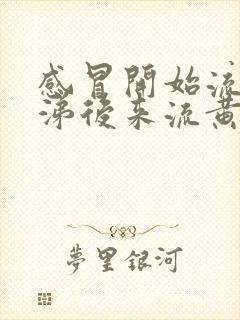 感冒開始流
涕後来流黄
夢里銀河